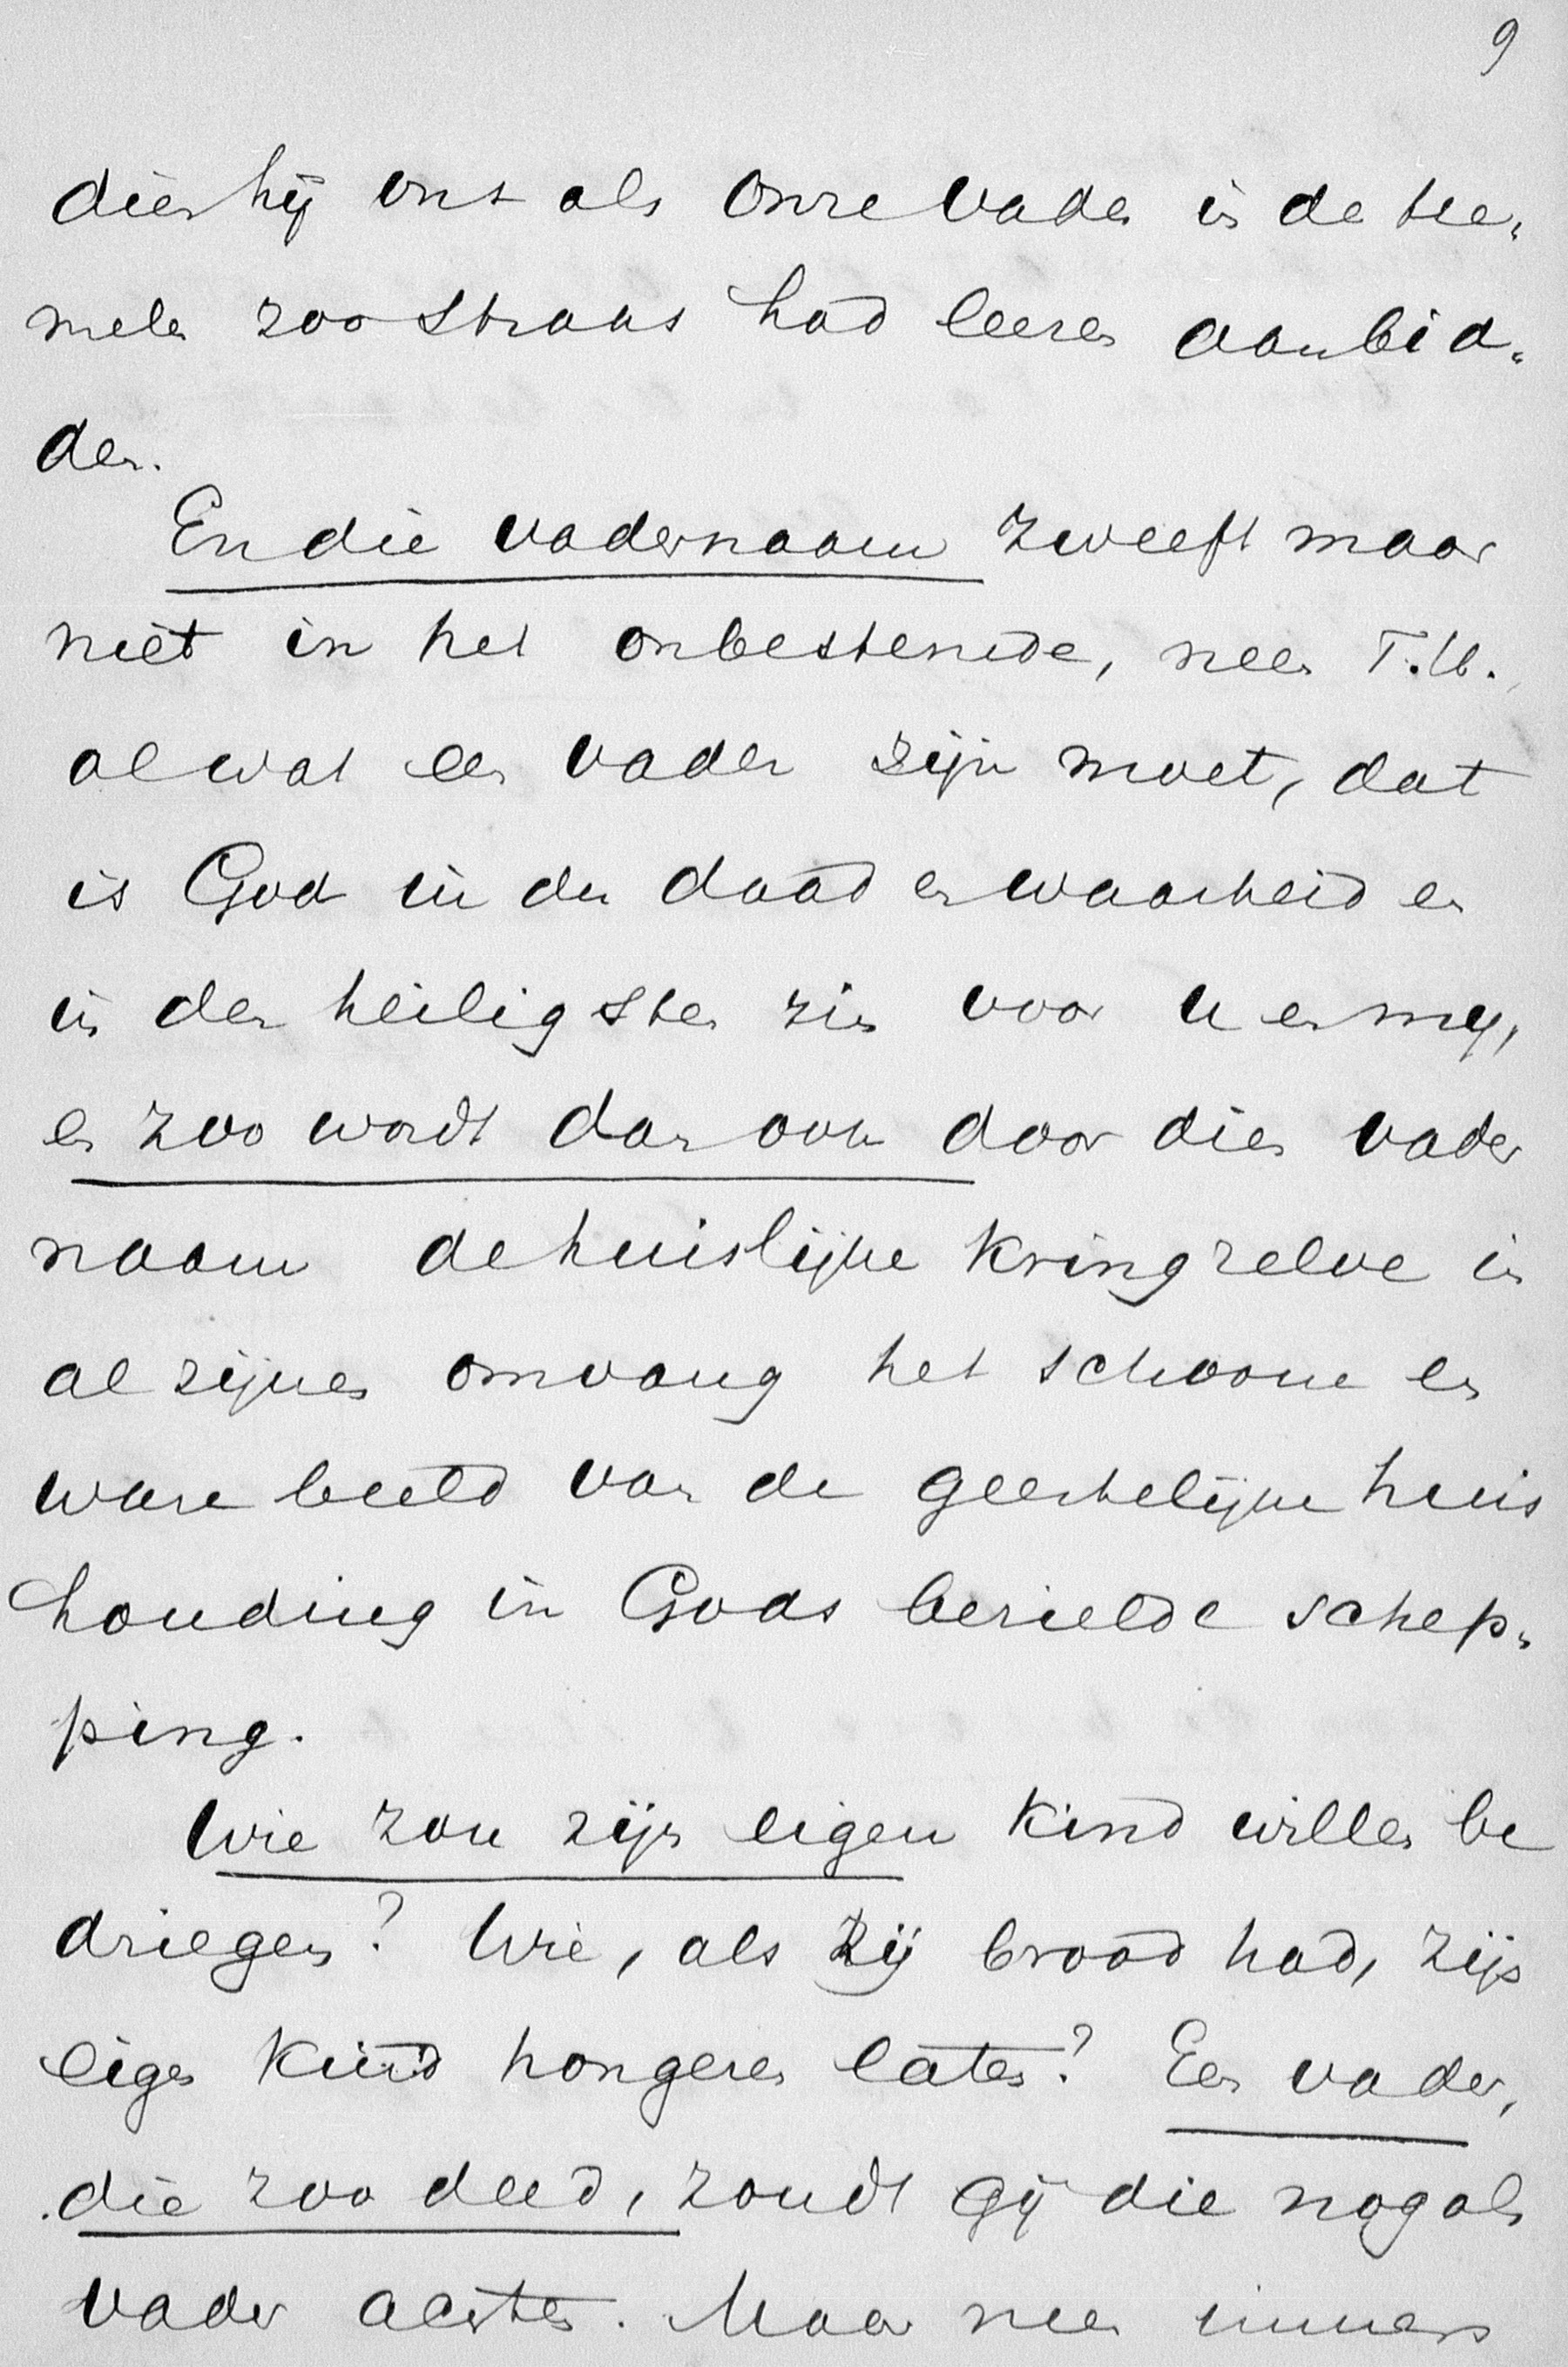 9
dien hij ons als Onze Vader in de hee-
melen zoo straks had leeren aanbid-
den.
En die vadernaam zweeft maar
niet in het onbestemde, neen T.U.,
al wat een vader zijn moet, dat
is God in der daad en waarheid en
in den heiligsten zin voor u en mij,
en zoo wordt dan ook door dien vader
naam de huislijke kring zelve in
al zijnen omvang het schoone en
ware beeld van de geestelijke huis
houding in Gods bezielde schep-
ping.
Wie zou zijn eigen kind willen be
driegen? Wie, als hij brood had, zijn
eigen kind hongeren laten? Een vader,
die zoo deed, zoudt gij die nog als
vader achten. Maar neen immers